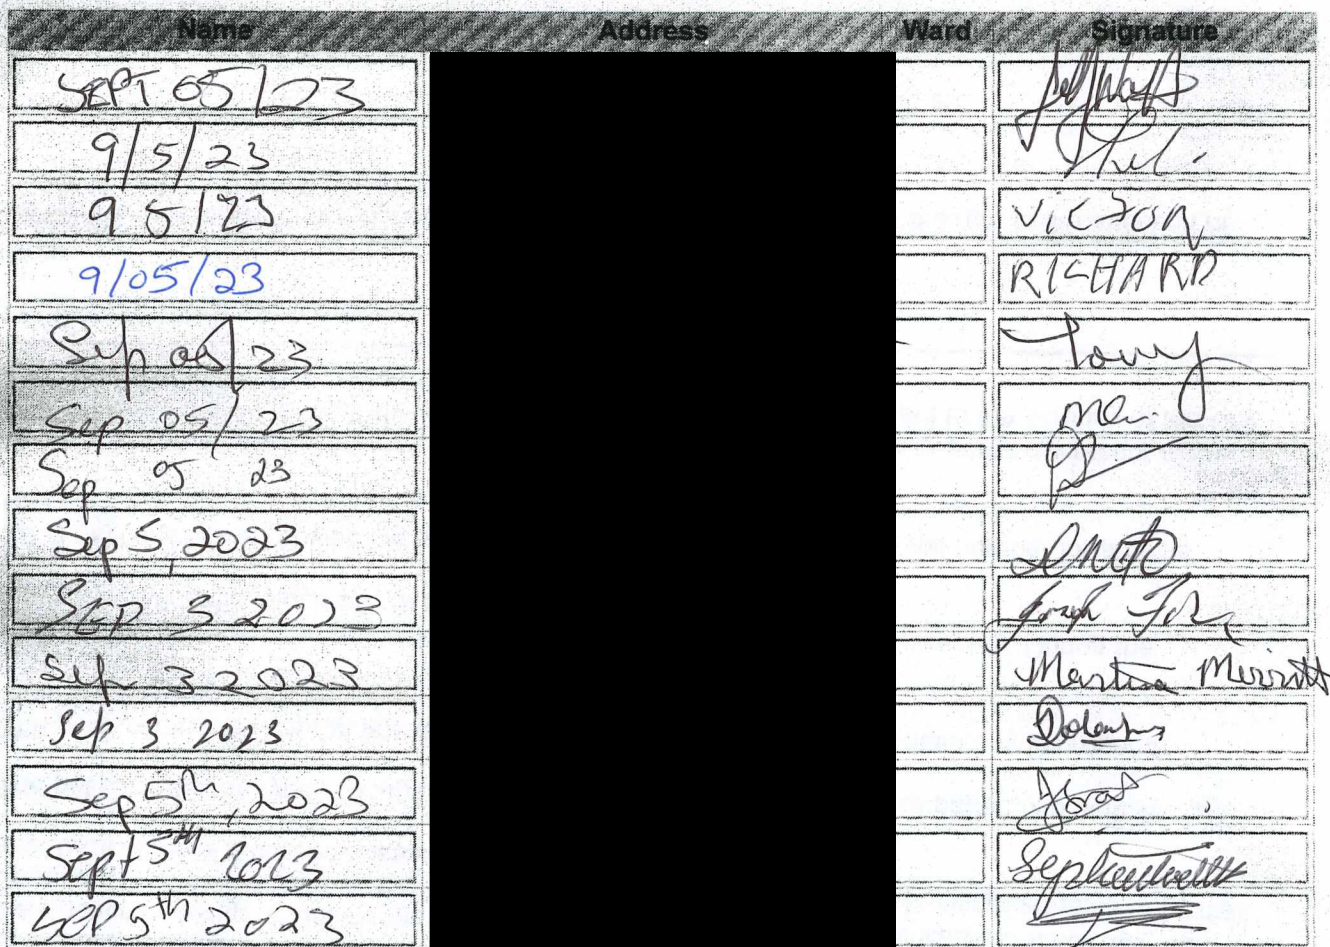 Name Address Ward Signature
SEPT 05/23
9/5/23
9 5/23 VICTOR
9/05/23 RICHARD
Sep 05/23 Tony
Sep 05/23
Sep 05 23
Sep 5, 2023
SEP 3 2023 Joseph
Sep 3 2023 Martina Merritt
Sep 3 2023
Sep 5th, 2023
Sept 5th 2023
SEP 5th 2023